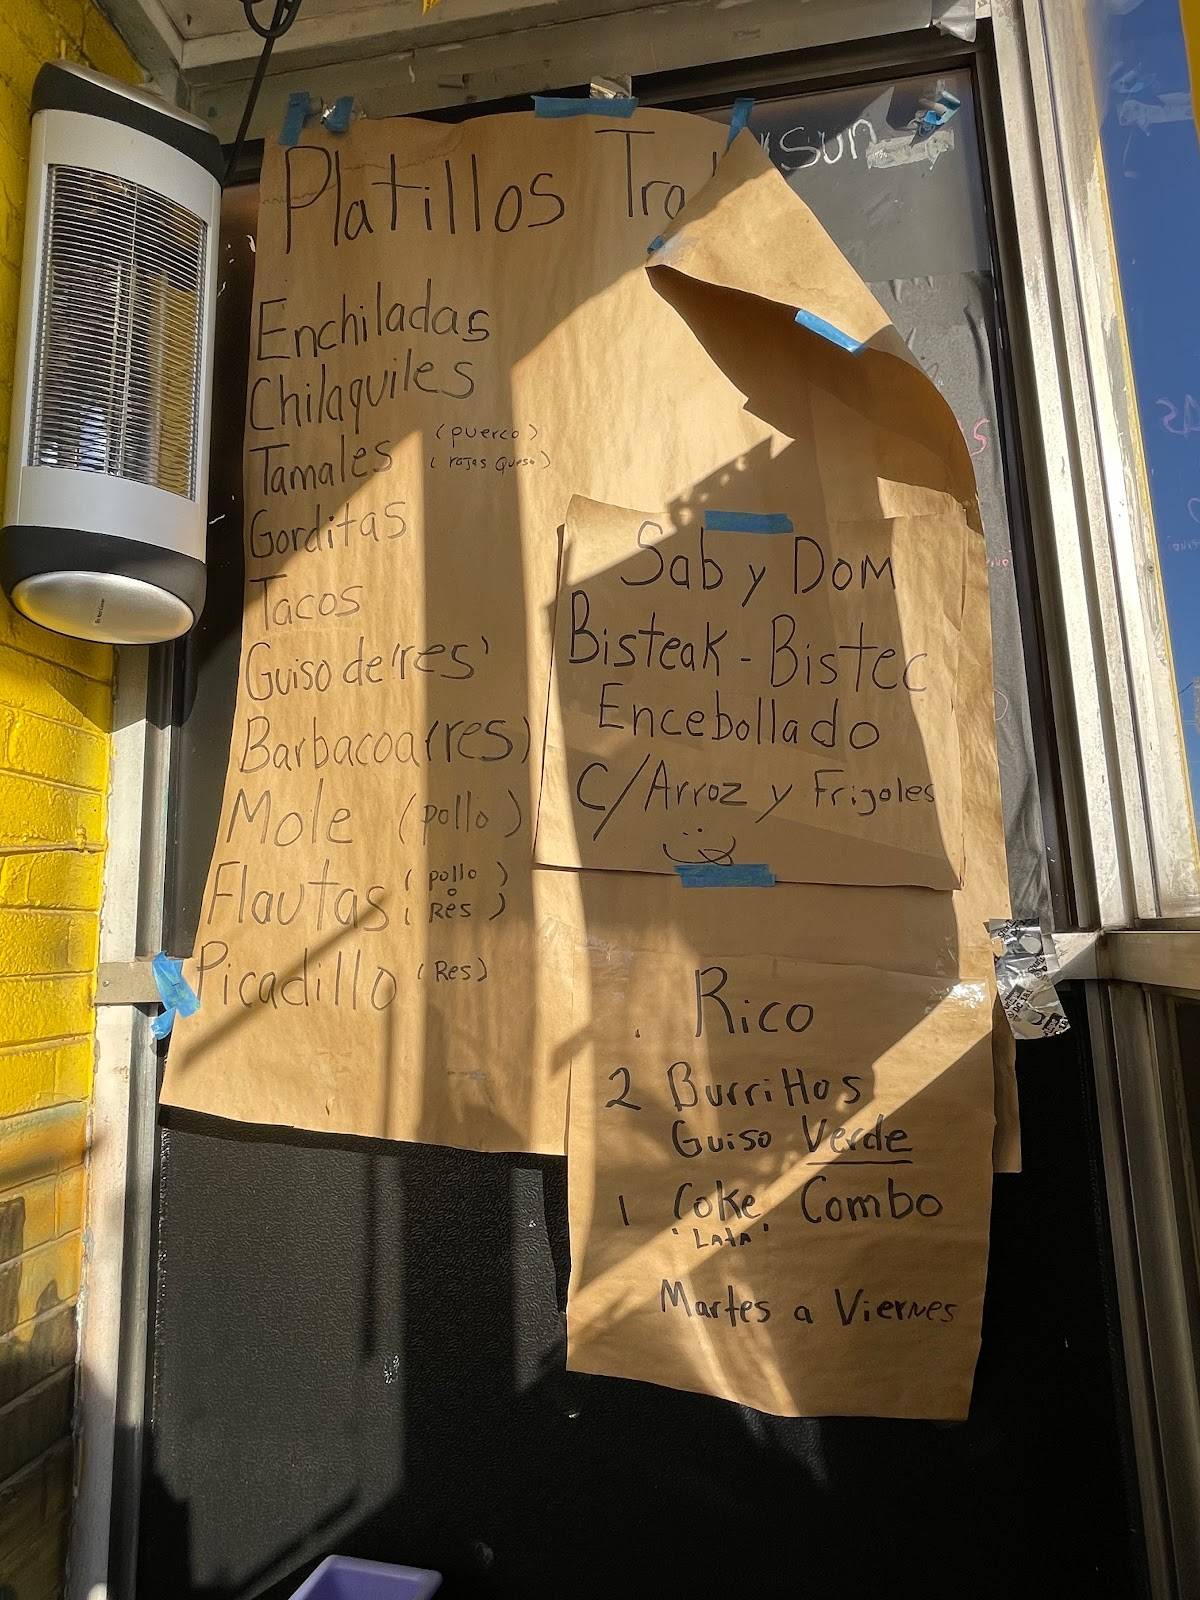 Platillos Tra
sun
Enchiladas
Chilaquiles
Tamales (puerco)
(rajas Queso)
Gorditas
Tacos
Guiso de 'res'
Barbacoa (res)
Mole (pollo)
Flautas (pollo)
o
(Res)
Picadillo (Res)
Sab y Dom
Bisteak - Bistec
Encebollado
C/Arroz y Frijoles
Rico
2 Burrittos
Guiso Verde
1 Coke Combo
"Lata"
Martes a Viernes